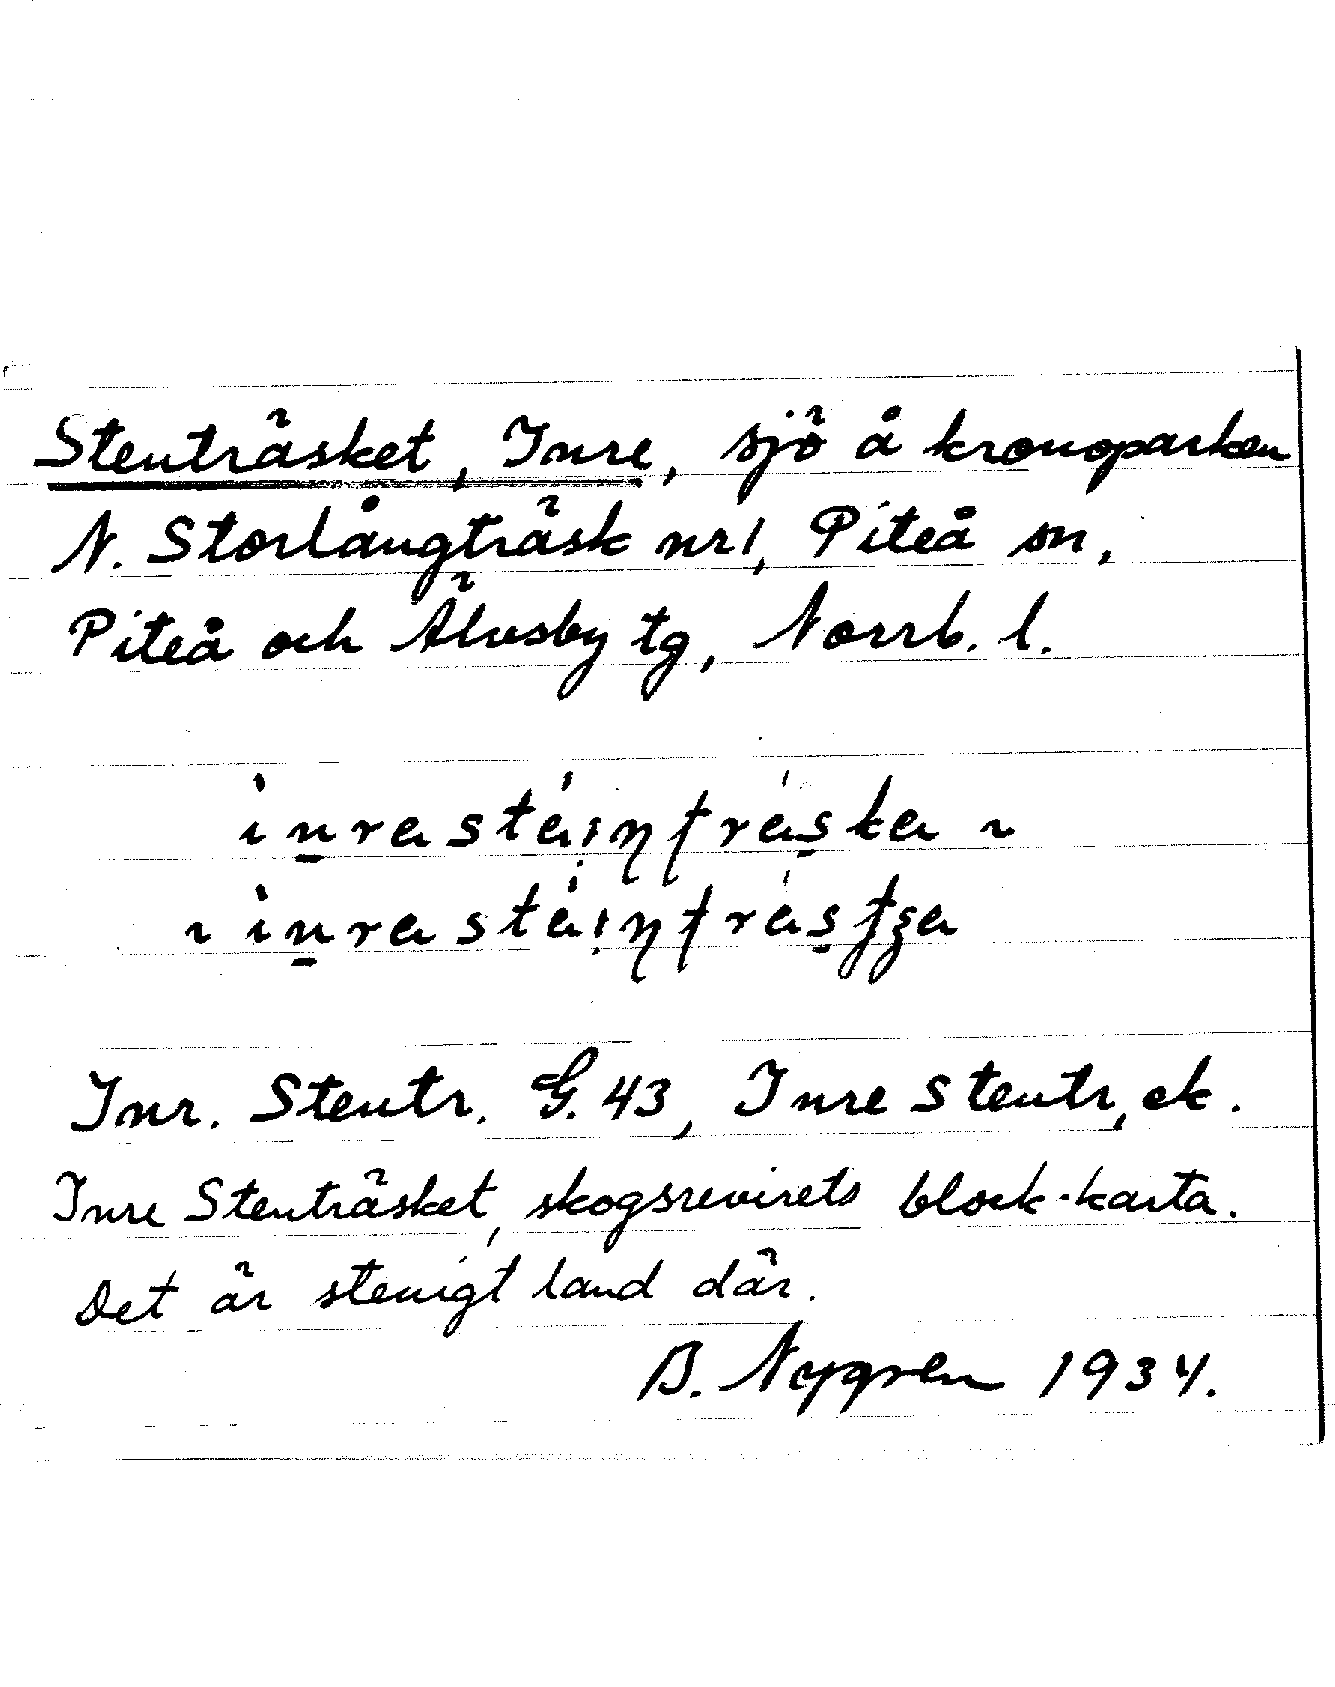 Stenträsket, Inre, sjö å kronoparken
N. Storlångträsk nr 1, Piteå sn,
Piteå och Älvsby tg, Norrb. l.
Inr. Stentr. G. 43, Inre Stentr, ek.
Inre Stenträsket, skogsrevirets block-karta.
Det är stenigt land där.
B. Nygren 1934.